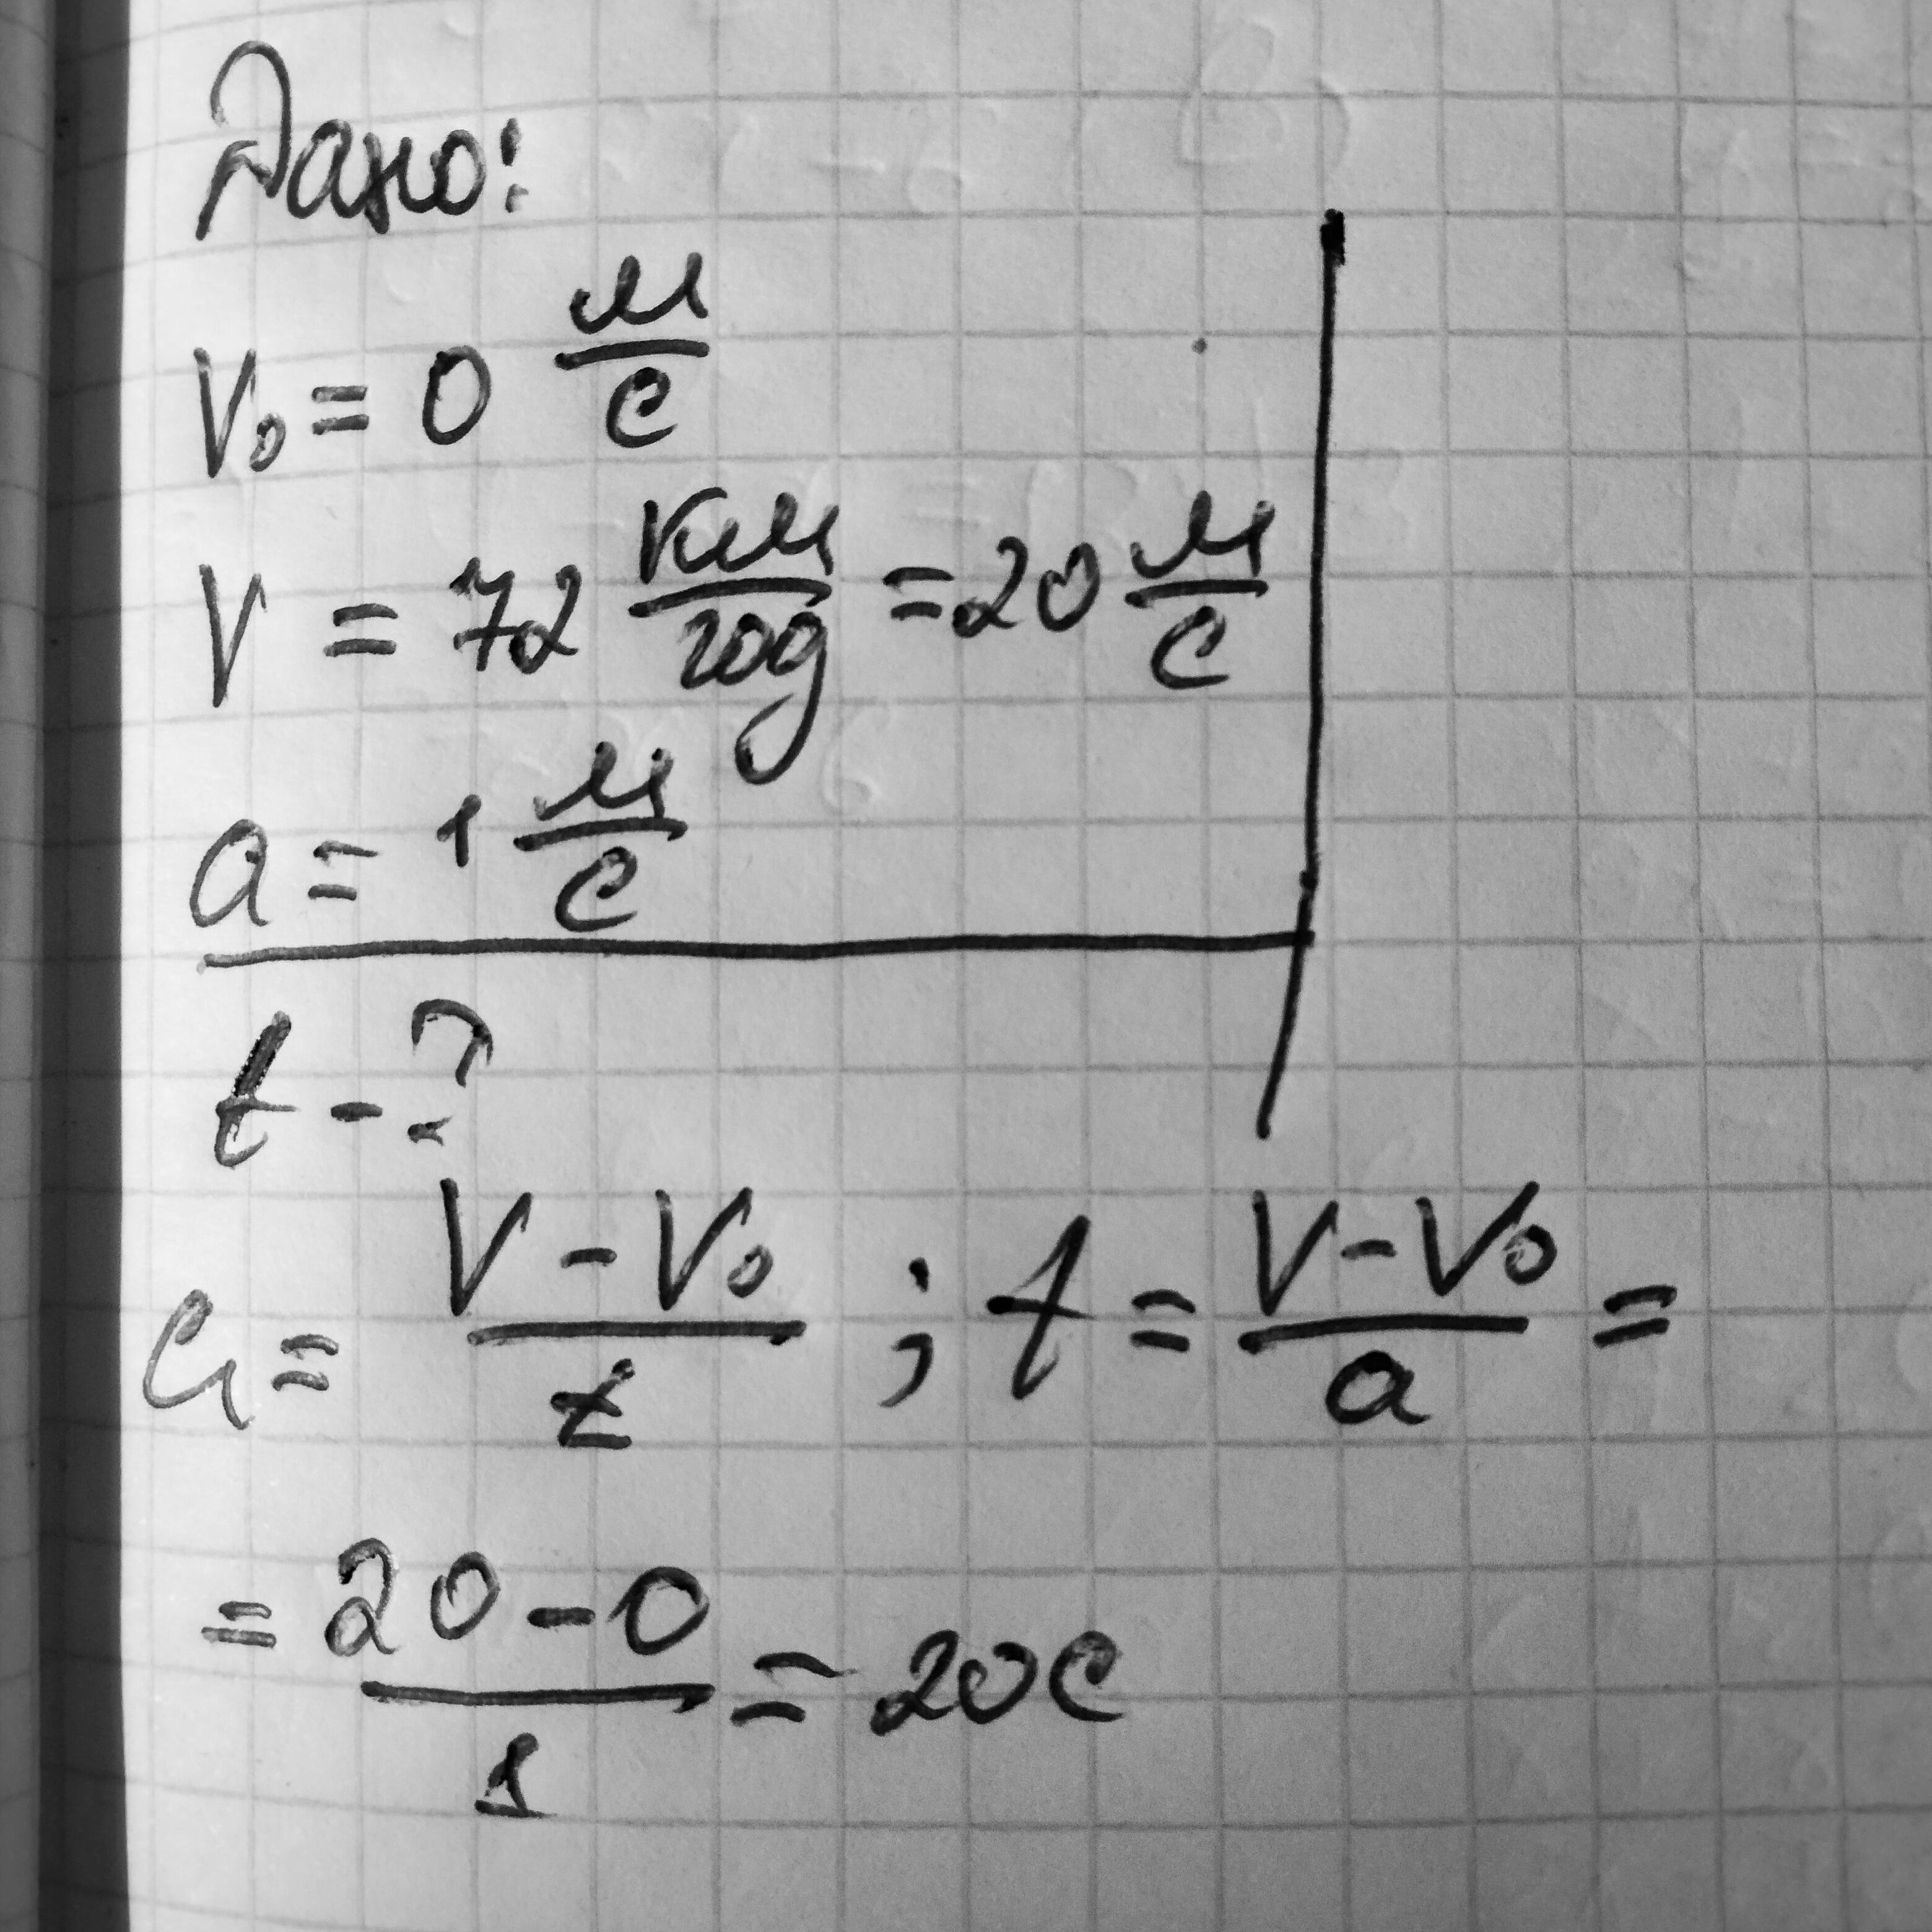 Дано:
V₀ = 0 м/с
V = 72 км/год = 20 м/с
a = 1 м/с
t - ?
a = (V - V₀)/t ; t = (V - V₀)/a =
= (20 - 0)/1 = 20c